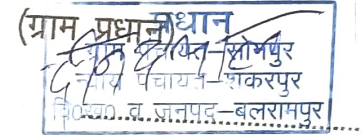 (ग्राम प्रधान)
प्रधान
ग्राम पंचायत-सोमपुर
न्याय पंचायत-शंकरपुर
वि०ख० व जनपद-बलरामपुर